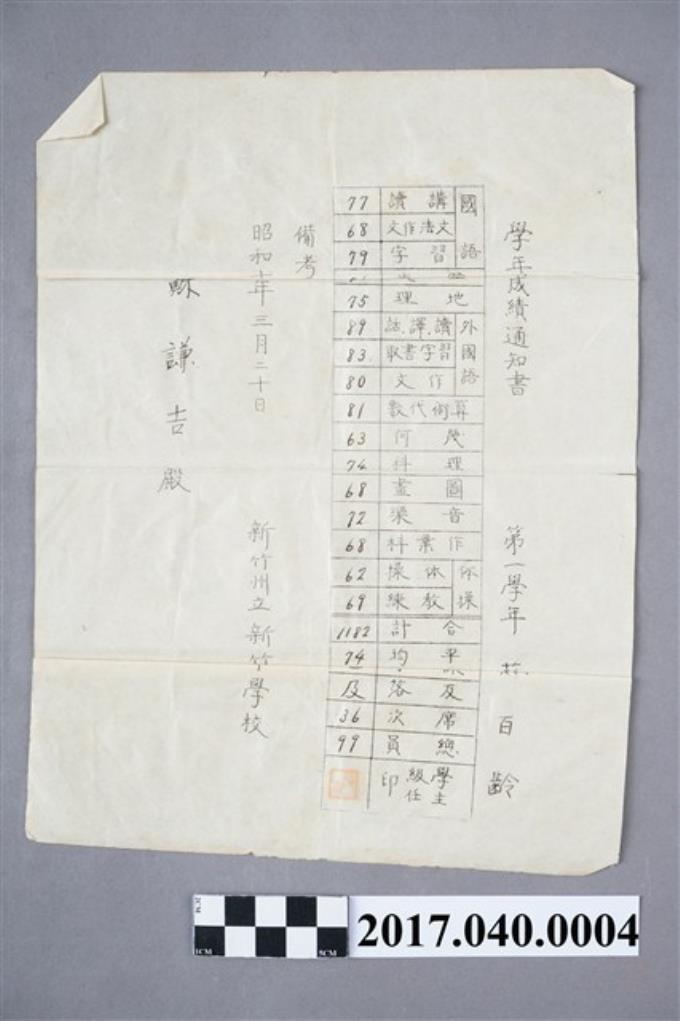 學年成績通知書 第一學年 百齡
國語 講讀 77
文法作文 68
習字 79
地理 75
外國語 讀.譯.話. 89
習字書取 83
作文 80
算術代數 81
幾何 63
理科 74
圖畫 68
音楽 72
作業科 68
体操 体操 62
教練 69
合計 1182
平均 74
及落 及
席次 36
總員 99
學級主任印
備考
昭和 年三月二十日
新竹州立新竹學校
謙吉殿
2017.040.0004
1CM
2CM
5CM